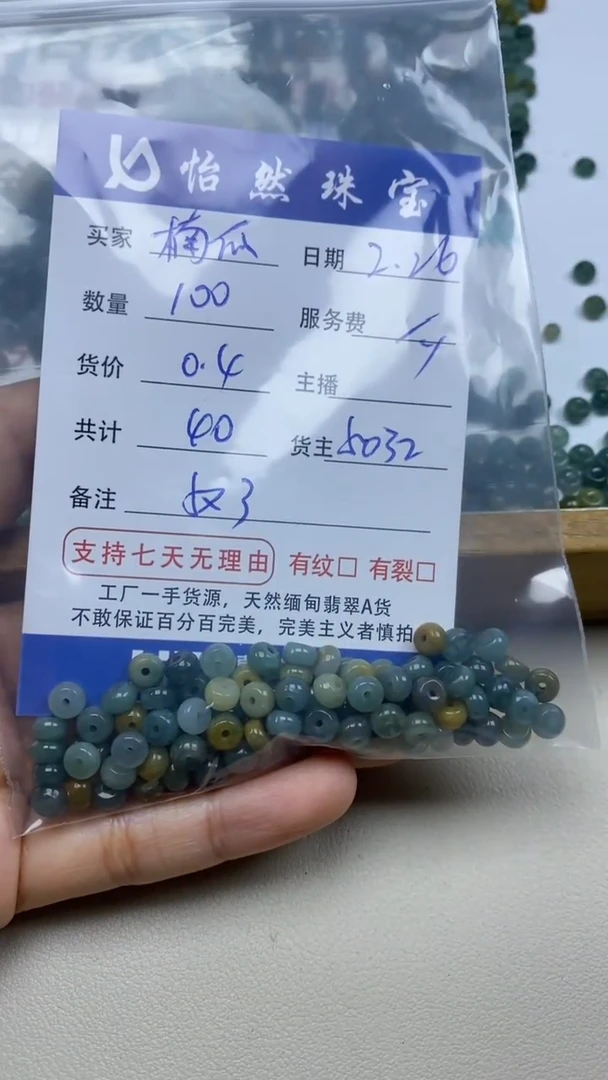 怡然珠宝
买家 楠瓜 日期 2.26
数量 100 服务费
货价 0.4 主播
共计 40 货主 8032
备注
支持七天无理由 有纹□ 有裂□
工厂一手货源，天然缅甸翡翠A货
不敢保证百分百完美，完美主义者慎拍